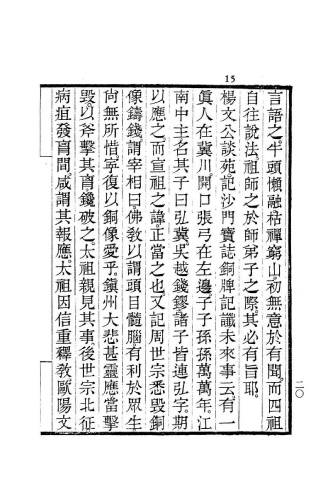 15
言語之。牛頭懶融枯禪窮山。初無意於有聞。而四祖
自往說法。祖師之於師弟子之際。其必有旨耶。
楊文公談苑。記沙門寶誌銅牌記讖未來事云。有一
眞人在冀川。開口張弓在左邊。子子孫孫萬萬年。江
南中主名其子曰弘冀。吳越錢鏐。諸子皆連弘字。期
以應之。而宣祖之諱。正當之也。又記周世宗悉毀銅
像鑄錢。謂宰相曰。佛教以謂頭目髓腦。有利於眾生。
尚無所惜。寧復以銅像愛乎。鎭州大悲甚靈應。當擊
毀。以斧擊其胷。鑱破之。太祖親見其事。後世宗北征。
病疽發胷間。咸謂其報應。太祖因信重釋敎。歐陽文
二〇